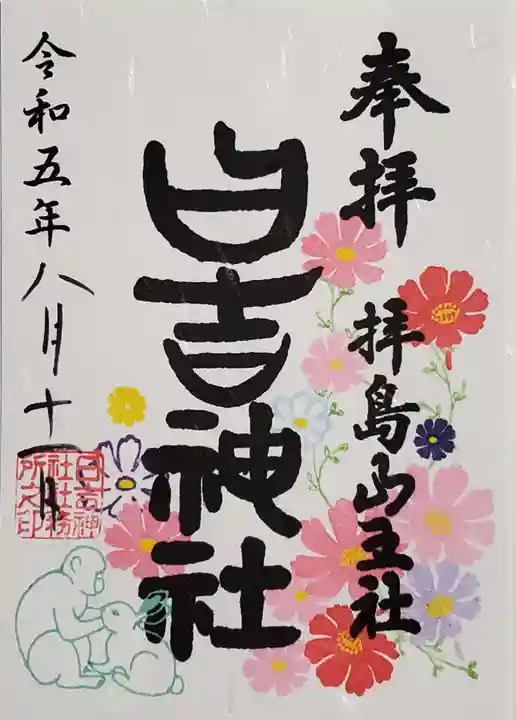 奉拝
拝島山王社
日吉神社
令和五年八月十一日
日吉神
社社務
所之印